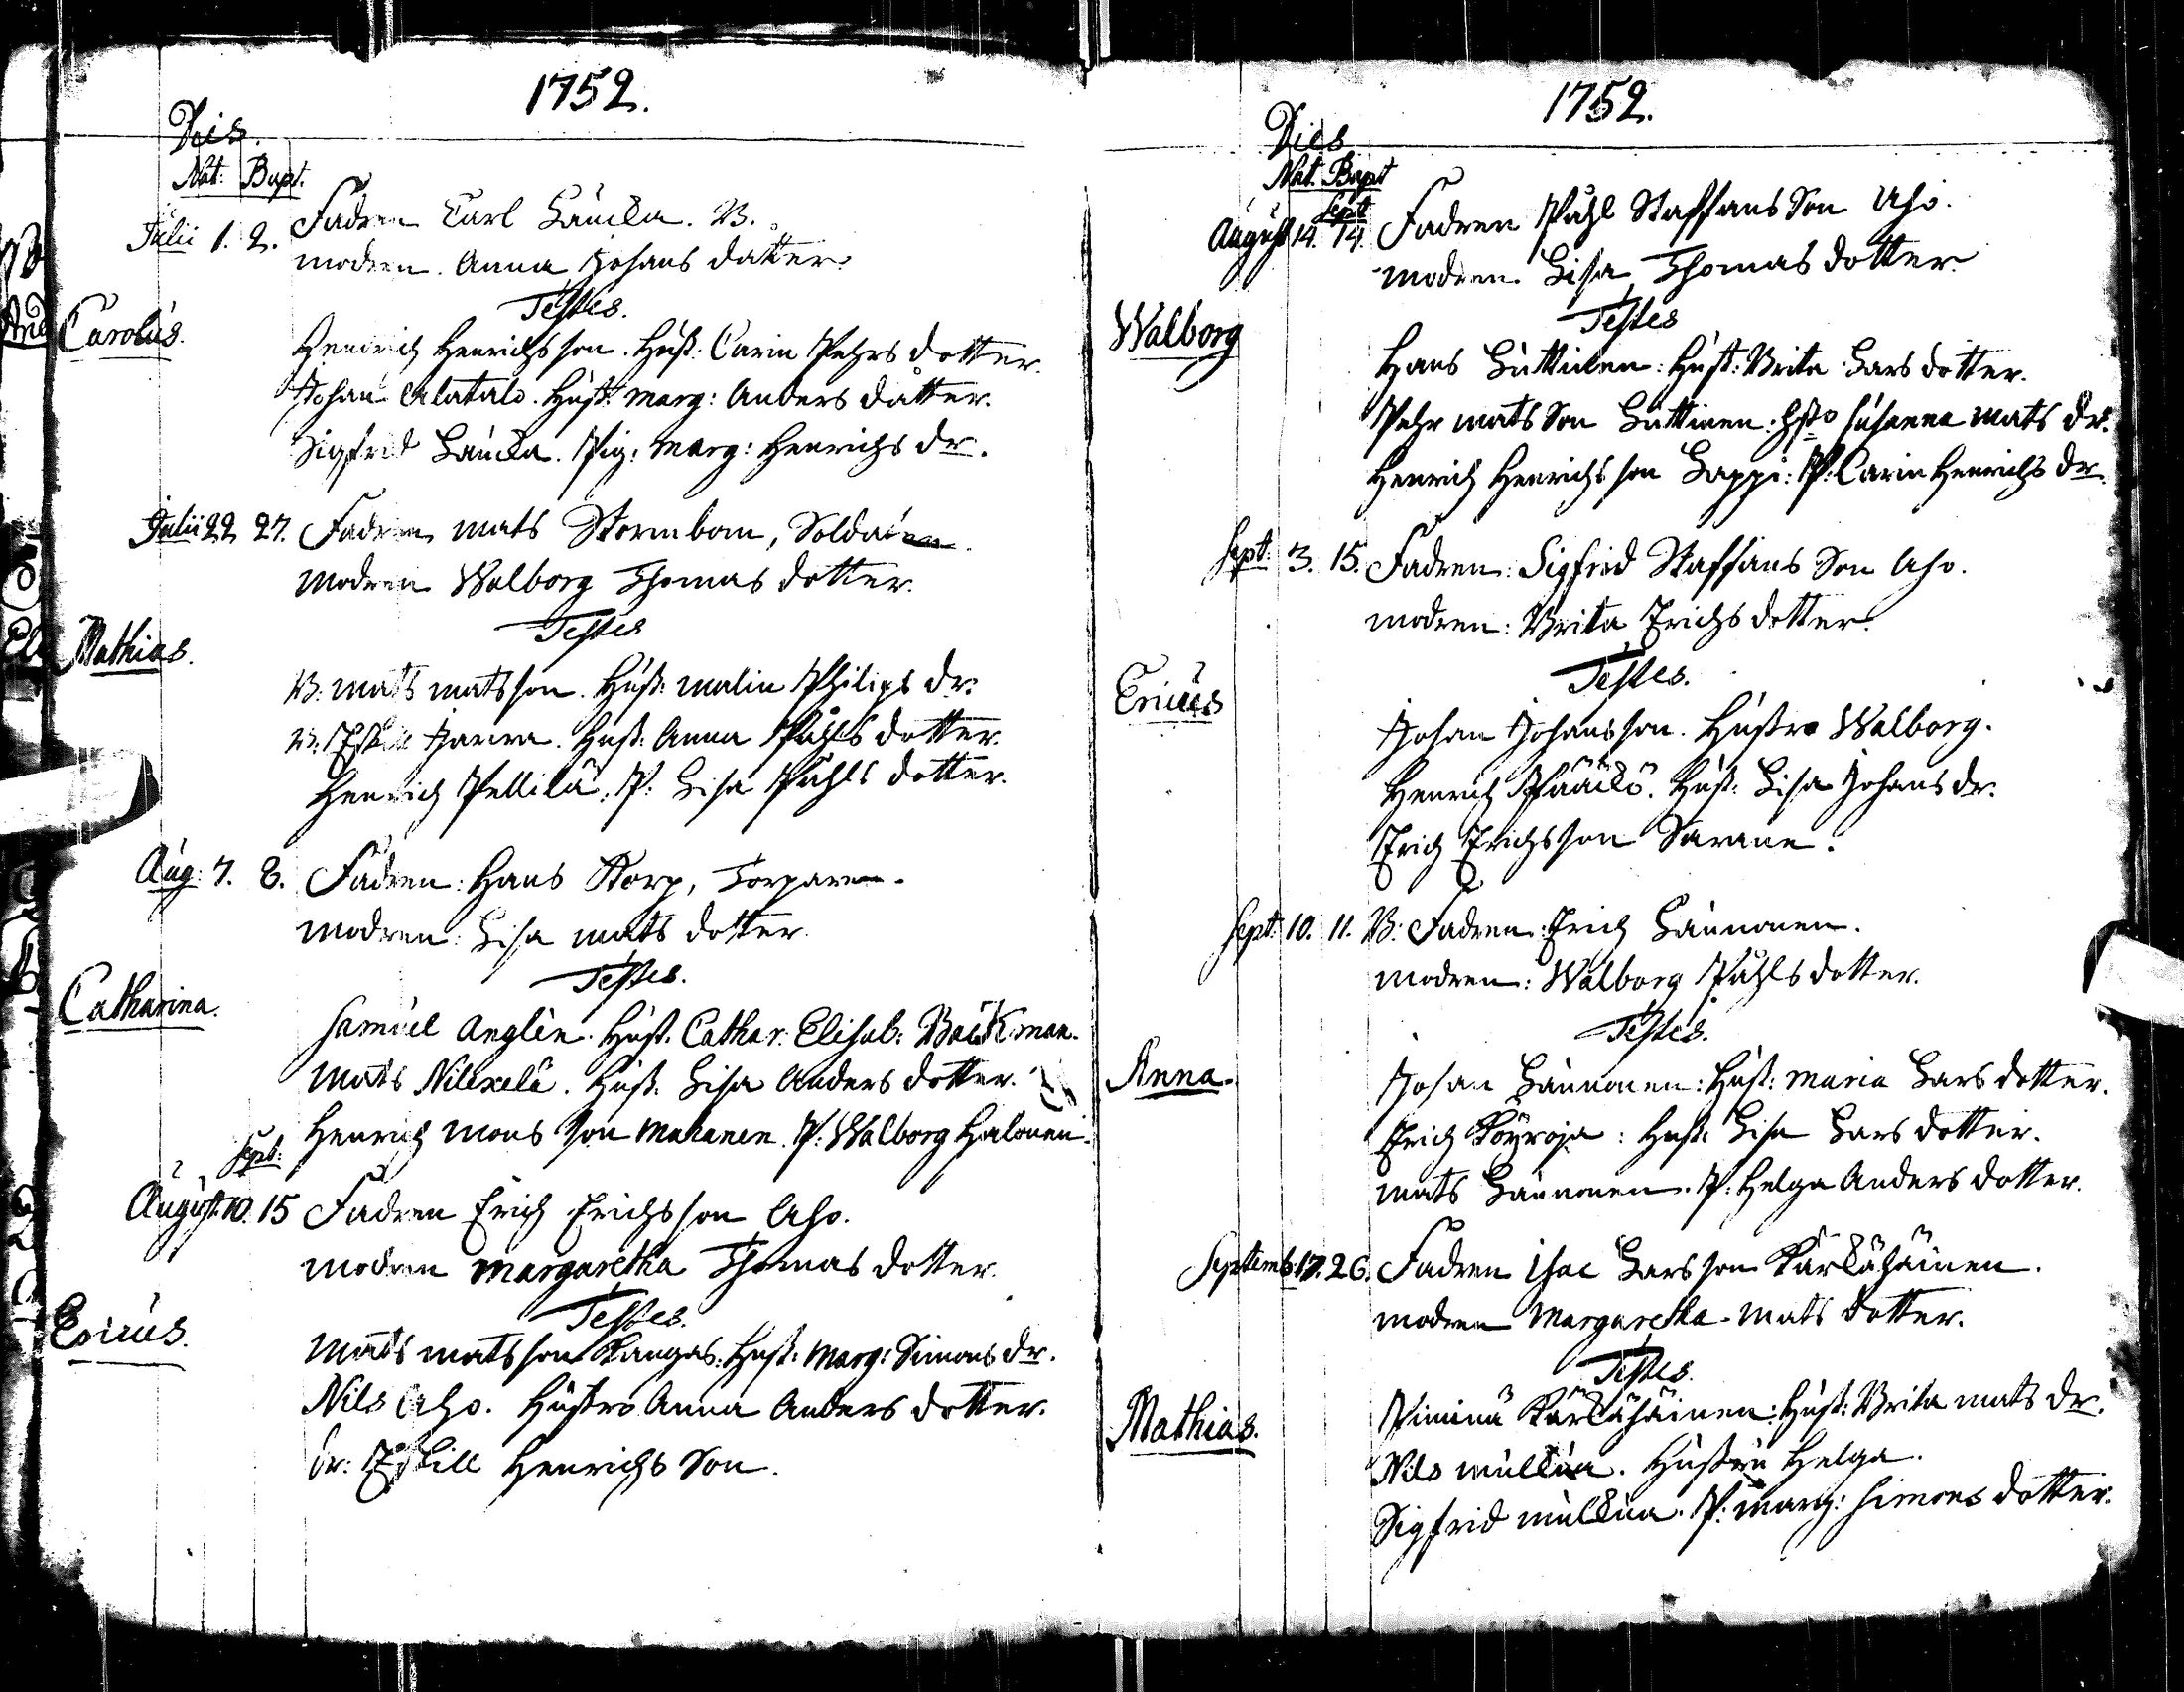 1752.
Dies.
Nat: Bapt.
Julii 1. 2. Fadren Carl Laucka. B.
modren. Anna Johans datter.
Testes.
Carolus.
Henrich Henrichsson. Hust: Carin Pehrs dotter.
Johan Alatalo. Hust: Marg: Anders dåtter.
Sigfrid Laucka. Pig: Marg: Henrichs dr.
Julii 22 27. Fadren Mats Stormbom, Soldaten.
Modren Walborg Thomas dotter.
Testes
Mathias.
B. Mats Matsson. Hust: Malin Philips dr.
B. Eskill. Hust: Anna Påhls dotter.
Henrich Pellikä. P: Lisa Påhls dotter.
Aug: 7. 8. Fadren: Hans Storp, Torparen.
modren: Lisa Mats dotter.
Testes.
Catharina.
Samuel Anglén. Hust. Cathar: Elisab: Bäckman.
Mats. Hust: Lisa Anders dotter.
Henrich Mons Son Makanen. P: Walborg Halonen.
Sept:
August: 10. 15 Fadren Erich Erichsson Aho.
modren Margaretha Thomas dotter.
Testes.
Ericus.
Mats Matsson Kangas. Hust: Marg: Simons dr.
Nils Aho. Hustro Anna Anders dotter.
Dr: Eskill Henrichs Son.
1752.
Dies
Nat. Bapt
Sept
August 14. 14. Fadren Påhl Staffans Son Aho.
modren. Lisa Thomas dotter.
Testes
Walborg
Hans Luttinen: Hust: Brita Lars dotter.
Pehr Mats Son Luttinen: Hsto Susanna Mats dr.
Henrich Henrichsson Lappi: P: Carin Henrichs dr.
Sept: 3. 15. Fadren: Sigfrid Staffans Son Aho.
modren: Brita Erichs dotter.
Testes.
Ericus
Johan Johansson. Hustro Walborg.
Henrich Pääckö. Hust: Lisa Johans dr.
Erich Erichsson.
Sept: 10. 11. B: Fadren: Erich Lännonen.
modren: Walborg Påhls dotter.
Testes.
Anna.
Johan Lännonen: Hust: Maria Lars dotter.
Erich Köyroja: Hust: Lisa Lars dotter.
Mats Lännonen. P: Helga Anders dotter.
Septemb: 17. 26. Fadren Isac Larsson Kärckähäinen.
modren Margaretha Mats dotter.
Testes.
Mathias.
Kärckähäinen: Hust: Brita Mats dr.
Nils Mulkua. Hustru Helga.
Sigfrid Mulkua. P: Marg: Simons dotter.